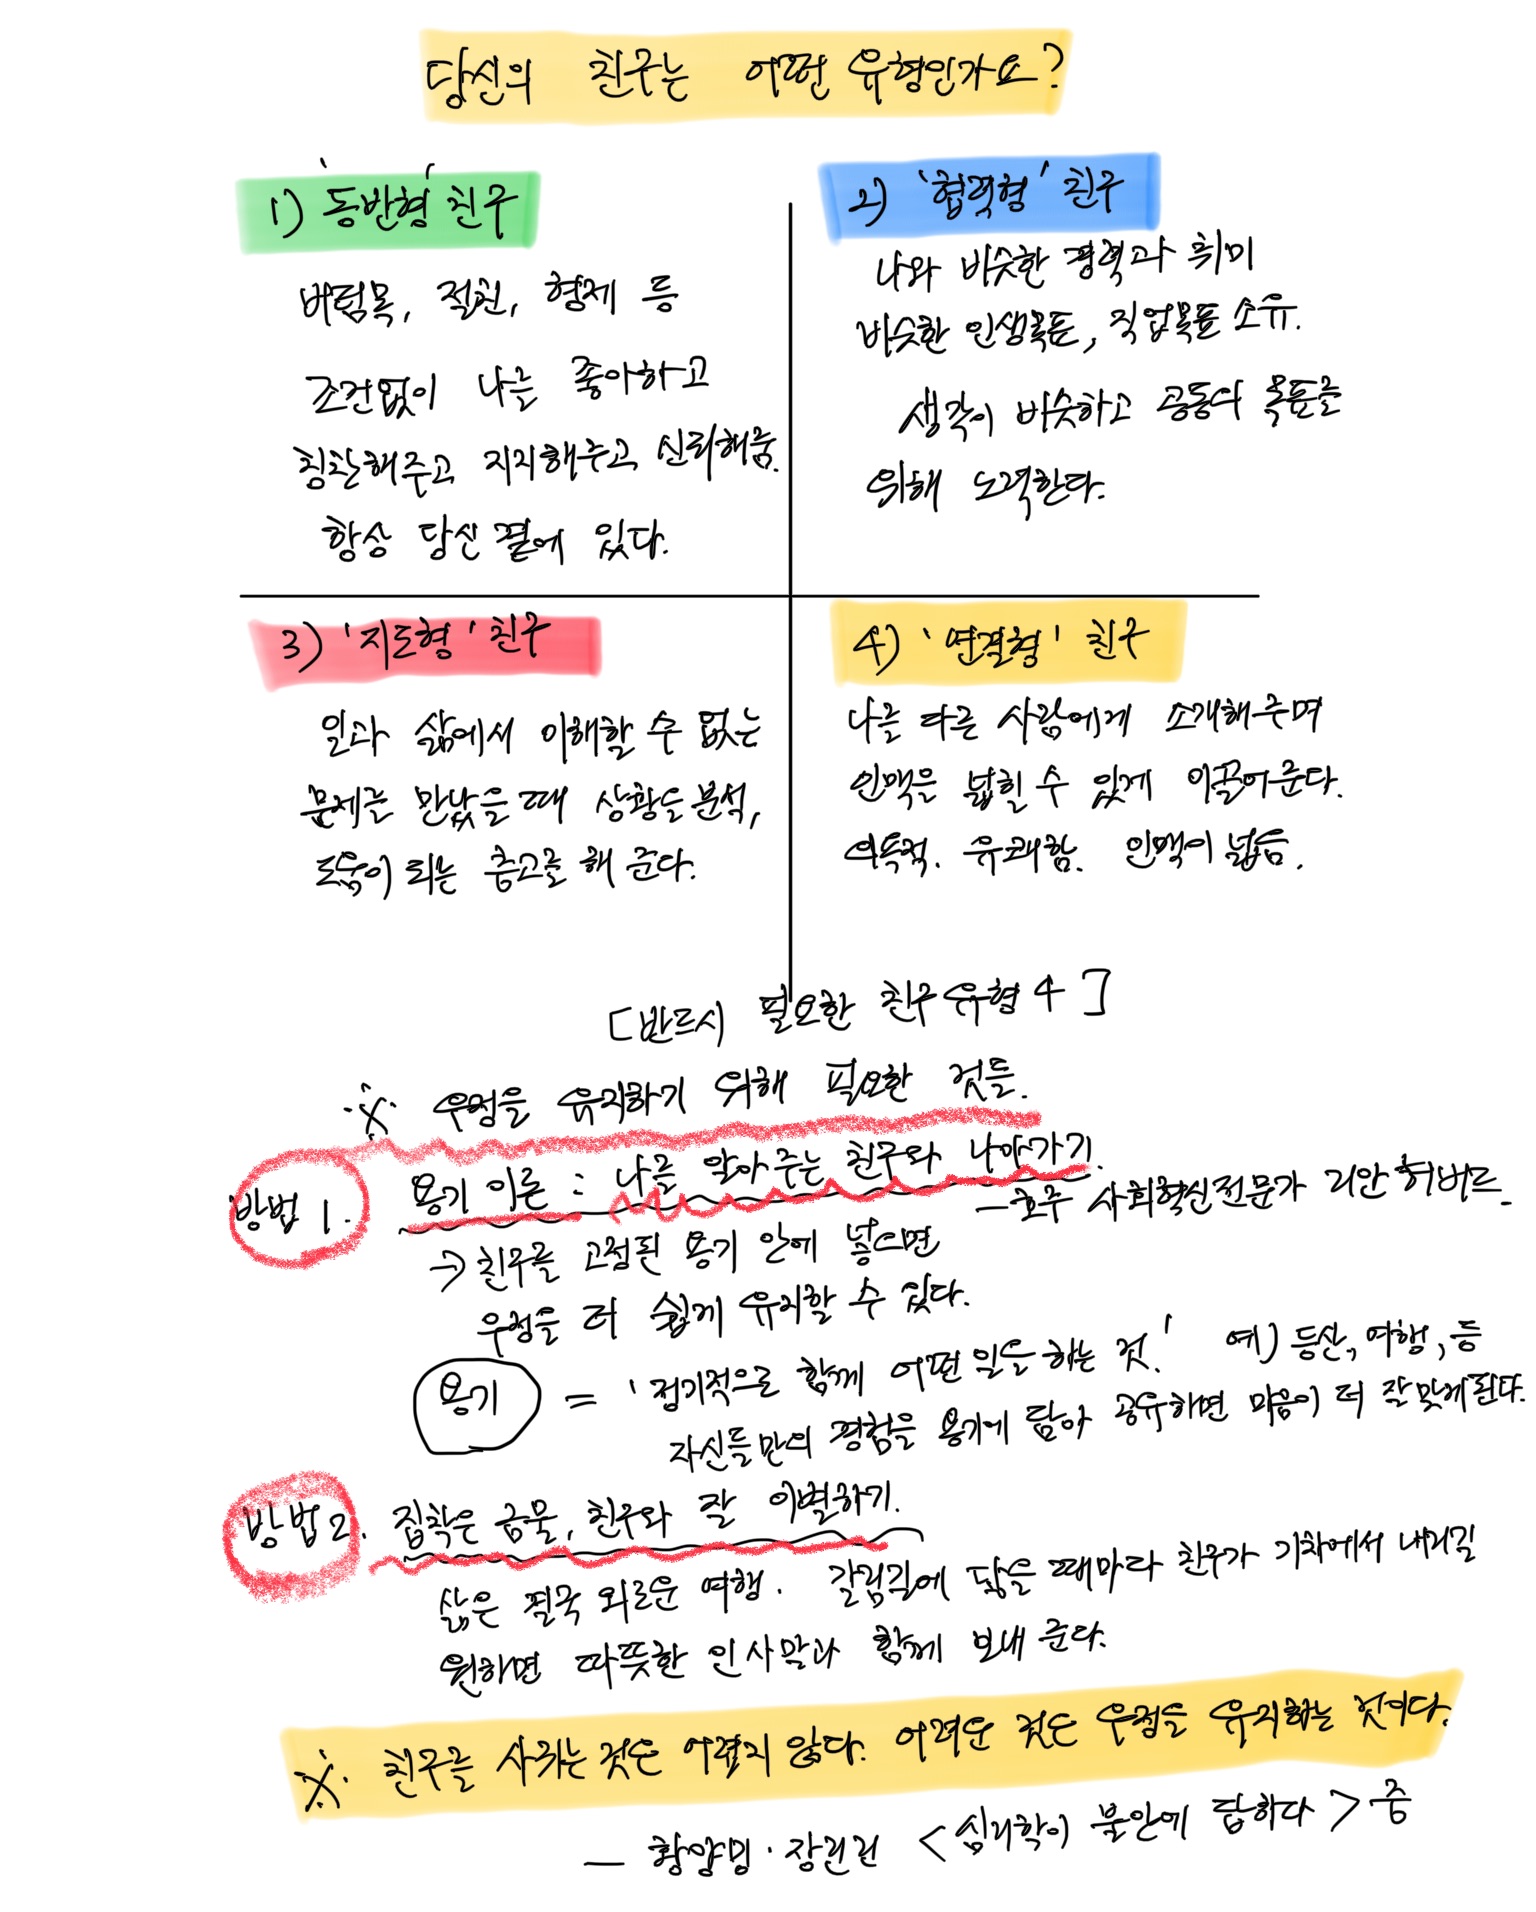 당신의 친구는 어떤 유형인가요?
1) '동반형' 친구
버팀목, 절친, 형제 등
조건없이 나를 좋아하고
칭찬해주고 지지해주고 신뢰해줌.
항상 당신 곁에 있다.
2) '협력형' 친구
나와 비슷한 경력과 취미
비슷한 인생목표, 직업목표 소유.
생각이 비슷하고 공동의 목표를
위해 노력한다.
3) '지도형' 친구
일과 삶에서 이해할 수 없는
문제를 만났을 때 상황을 분석,
도움이 되는 충고를 해 준다.
4) '연결형' 친구
나를 다른 사람에게 소개해주며
인맥을 넓힐 수 있게 이끌어준다.
의욕적. 유쾌함. 인맥이 넓음.
[반드시 필요한 친구유형 4]
※ 우정을 유지하기 위해 필요한 것들.
방법 1. 용기 이론 : 나를 알아주는 친구와 나아가기.
- 호주 사회혁신전문가 리안 허버드
→ 친구를 고정된 용기 안에 넣으면
우정을 더 쉽게 유지할 수 있다.
용기 = '정기적으로 함께 어떤 일을 하는 것.' 예) 등산, 여행, 등
자신들만의 경험을 용기에 담아 공유하면 마음이 더 잘맞게된다.
방법2. 집착은 금물, 친구와 잘 이별하기.
삶은 결국 외로운 여행. 갈림길에 닿을 때마다 친구가 기차에서 내리길
원하면 따뜻한 인사말과 함께 보내 준다.
※ 친구를 사귀는 것은 어렵지 않다. 어려운 것은 우정을 유지하는 것이다.
- 황양밍·장린린 <심리학이 불안에 답하다> 중